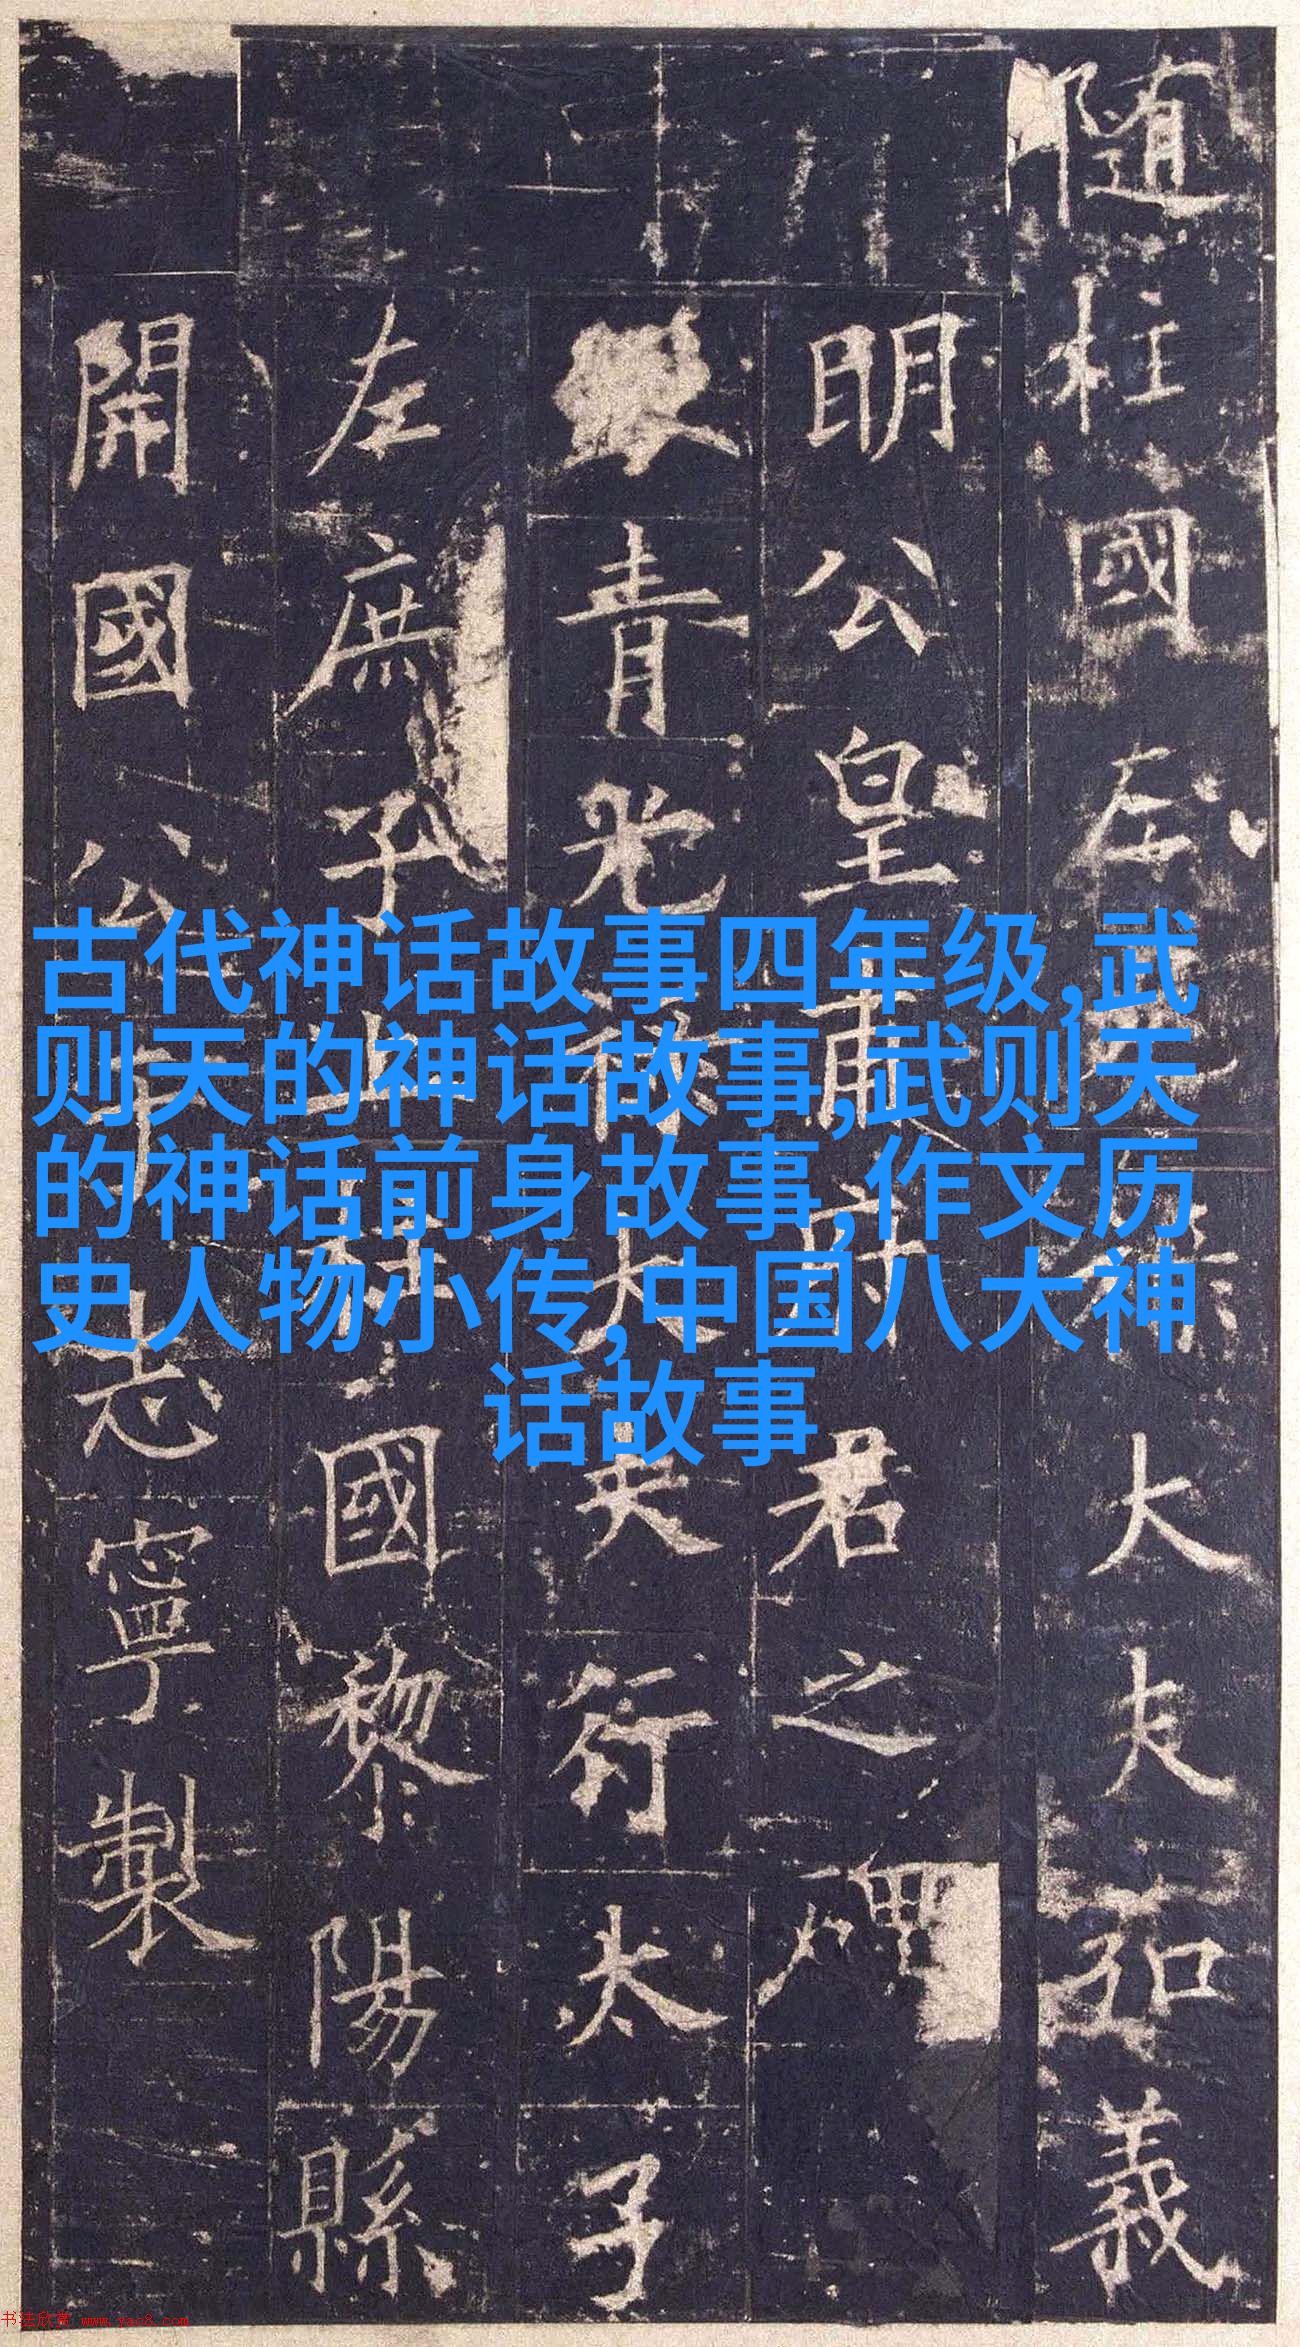 随柱國左光祿大夫弘義
明公皇甫府君之碑
銀青光祿大夫行太子
左庶子上柱國黎陽縣
開國公于志寧製
古代神话故事四年级,武
则天的神话故事,武则天
的神话前身故事,作文历
史人物小传,中国八大神
话故事
书法欣赏 www.yac8.com